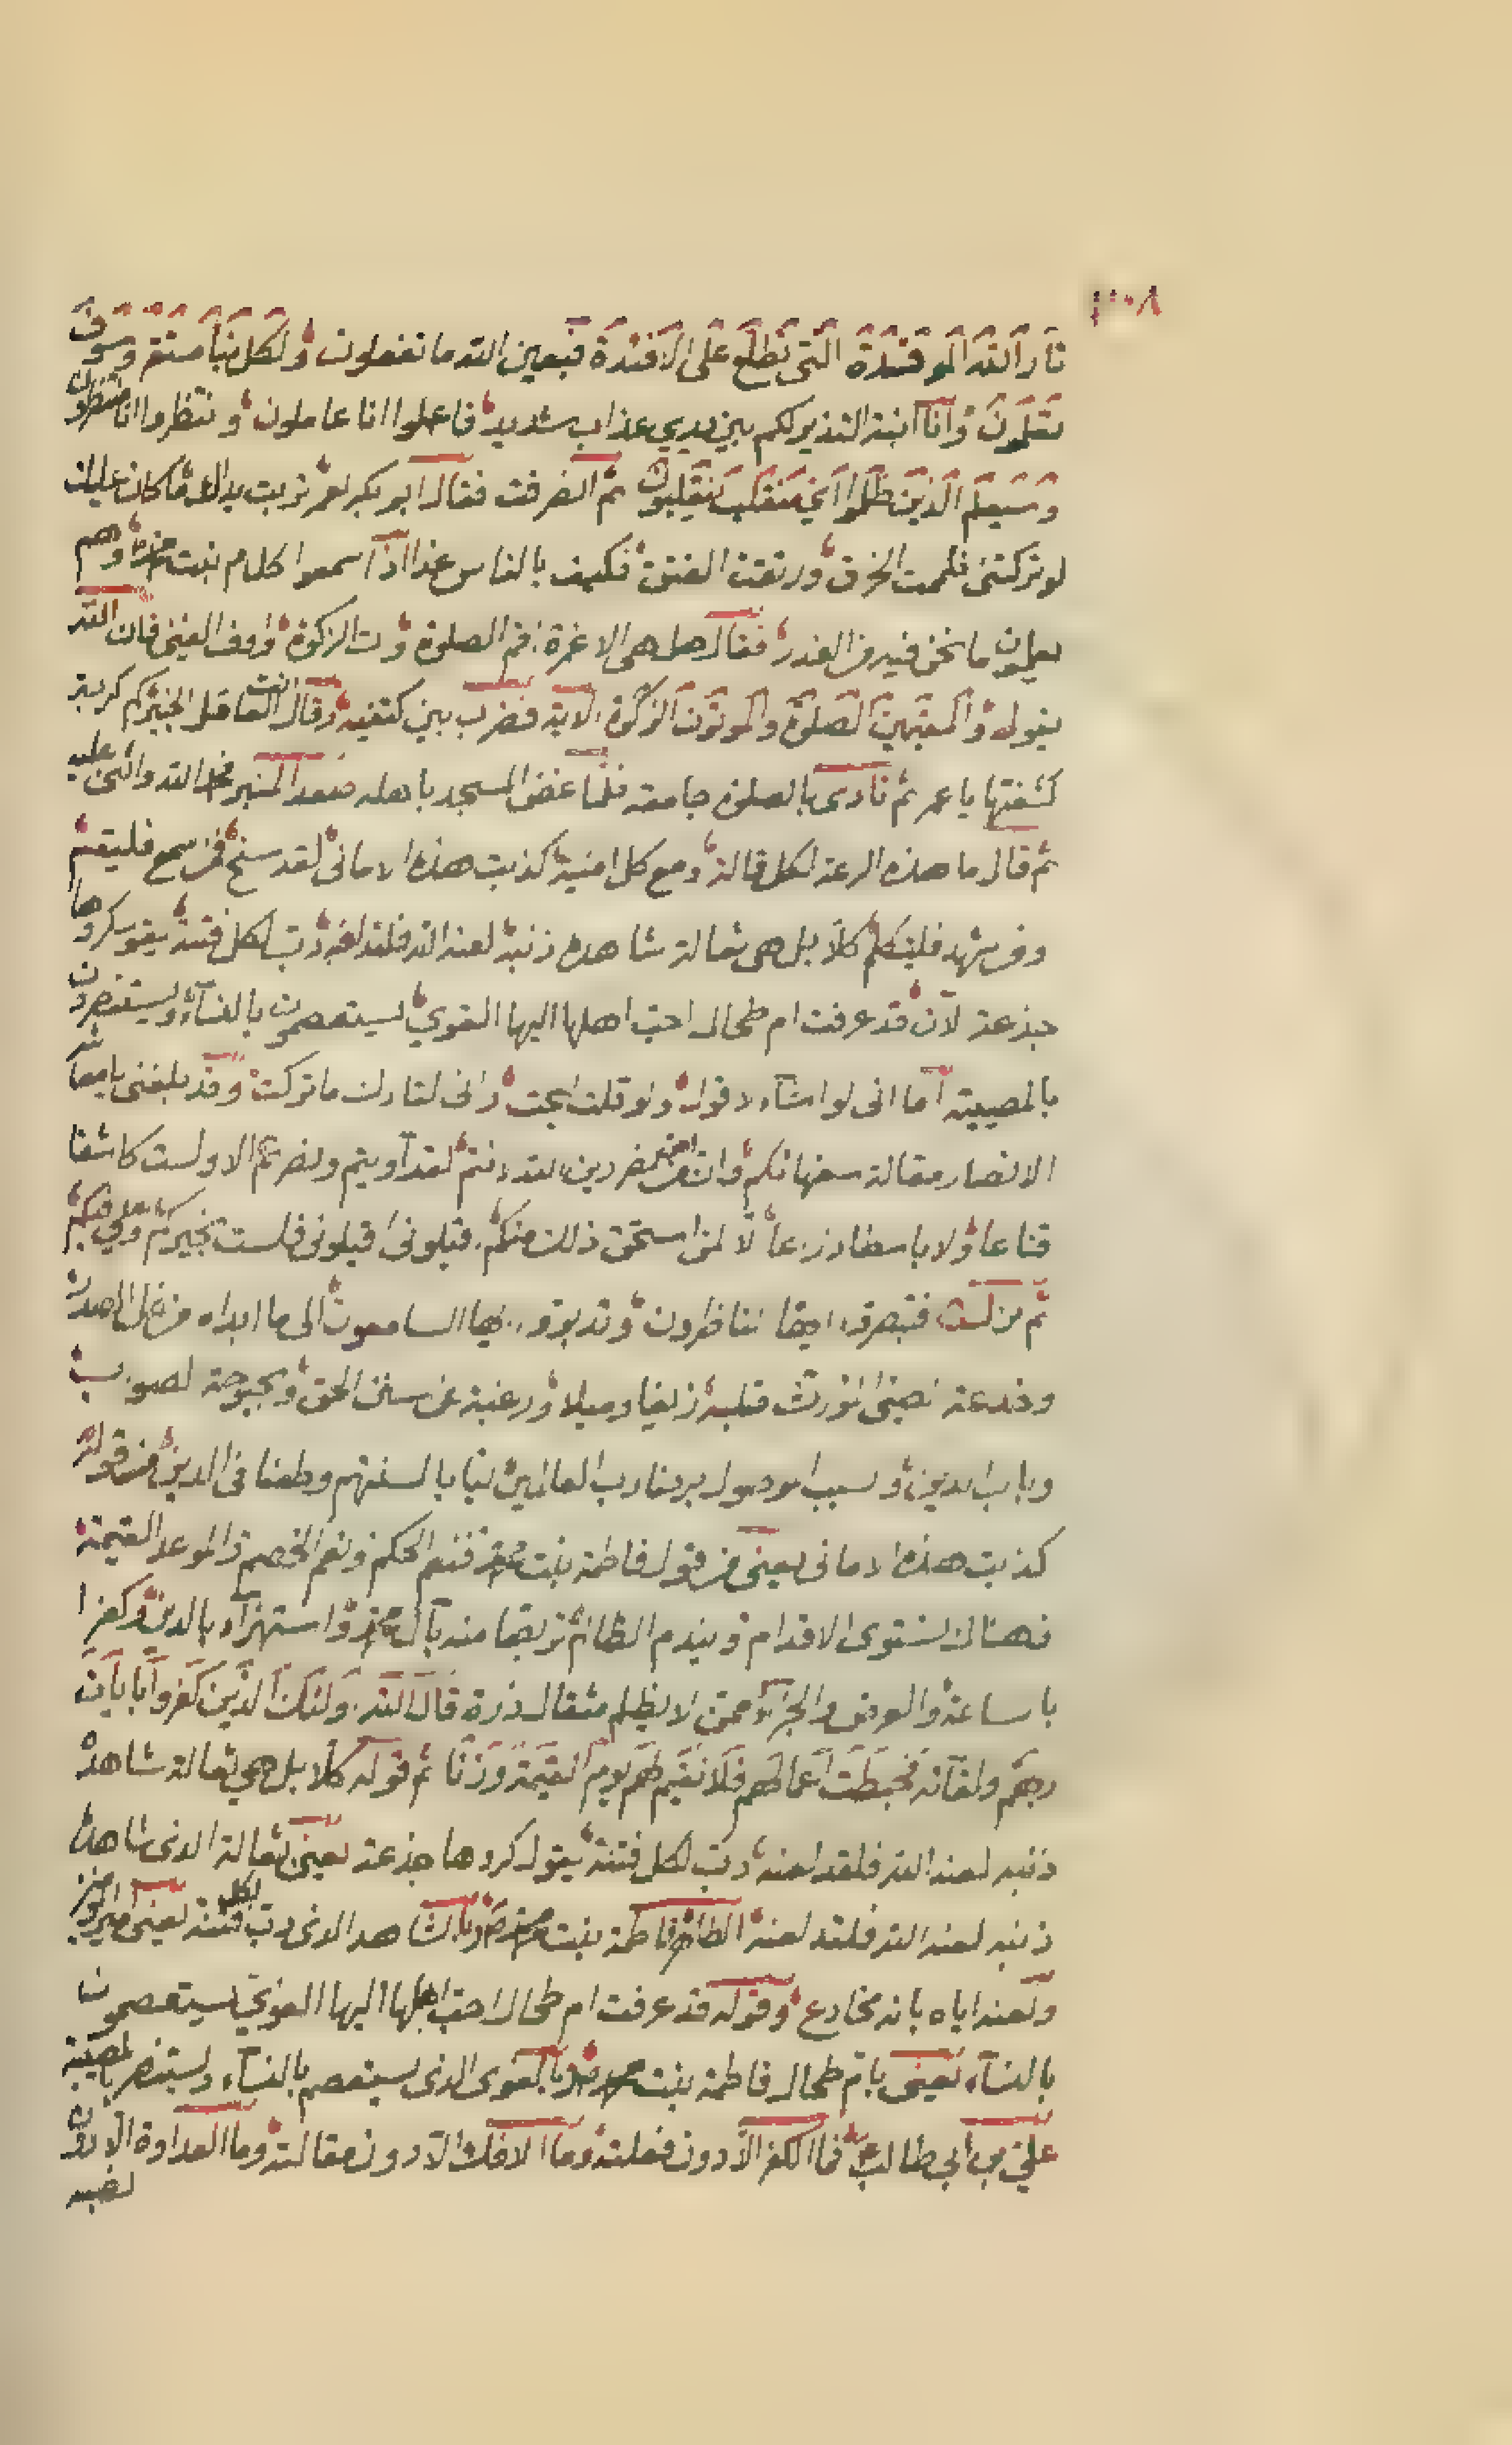 ١١٠٨
نار الله الموقدة التي تطلع على الافئدة فبعين الله ما تفعلون ولكل نبأ مستقر وسوف
تعلمون وانا ابنة النذير لكم بين يدي عذاب شديد فاعملوا انا عاملون وانتظروا انا منتظرون
وسيعلم الذين ظلموا اي منقلب ينقلبون ثم انصرفت فقال ابو بكر لعمر تربت يداك ما كان عليك
لو تركتني فلممت الخرق ورتقت الفتق فكيف بالناس غدا اذا سمعوا كلام بنت محمد وهم
يعلمون ما نحن فيه من الغدر فقال هل هي الا غمرة اقم الصلوة وات الزكوة واوف العين فان الله
يقول والمقيمين الصلوة والموتون الزكوة الاية فضرب بين كتفيه وقال انت القائل كم كربة
كشفتها يا عمر ثم نادى بالصلوة جامعة فلما غض المسجد باهله صعد المنبر فحمد الله واثنى عليه
ثم قال ما هذه الرعة لكل قالة ومع كل امنية كذبت هذه الاماني لقد سنح فمن سمع فليقم
ومن شهد فليتكلم كلا بل هي ثعالة شاهده ذنبه لعنه الله فلقد لعنه رب لكل فتنة يقول كروها
جذعة لان قد عرفت ام طحال احب اهلها اليها الغوي يستعصمون بالنساء ويستنصرون
بالمصيبة اما اني لو اشاء لاقول ولو قلت لبحت واني لتارك ما تركت وقد بلغني يا معاشر
الانصار مقالة سفهائكم وانتم لقد اويتم ونصرتم الا ولست كاشفا
قناعا ولا باسطا ذراعا الا لمن استحق ذلك منكم اقيلوني اقيلوني فلست بخيركم وعلي فيكم
ثم نزل فتبصروا ايها الناظرون وتدبروا ايها السامعون الى ما ابداه من غل الصدر
وخدعة قلبه زيغا وميلا ورغبة عن سنن الحق وبحبوحة الصواب
وباب الدين وسبب الوصول برضا رب العالمين ليا بالسنتهم وطعنا في الدين فمن قوله
كذبت هذه الاماني يعني من قول فاطمة بنت محمد فنعم الحكم ونعم الخصم والموعد القيمة
فهناك تستوى الاقدام ويندم الظالم تعريضا منه بآل محمد واستهزاء بالدين وكفرا
بالساعة والعرض والجزاء ممن لا يظلم مثقال ذرة قال الله اولئك الذين كفروا بايات
ربهم ولقائه فحبطت اعمالهم فلا نقيم لهم يوم القيمة وزنا ثم قوله كلا بل هي ثعالة شاهده
ذنبه لعنه الله فلقد لعنه رب لكل فتنة يقول كروها جذعة يعني ثعالة الذي شاهده
ذنبه لعنه الله فلقد لعنه الظالم فاطمة بنت محمد وبالشاهد الذي رب لكل فتنة يعني امير المؤمنين
ولعنه اياه بانه مخادع وقوله قد عرفت ام طحال احب اهلها اليها الغوي يستعصمون
بالنساء يعني بام طحال فاطمة بنت محمد وبالغوى الذي يستعصم بالنساء ويستنصر بالمصيبة
علي بن ابي طالب فما الكفر الا دون فعلته وما الافك الا دون مقالته وما العداوة الا دون
نصبه